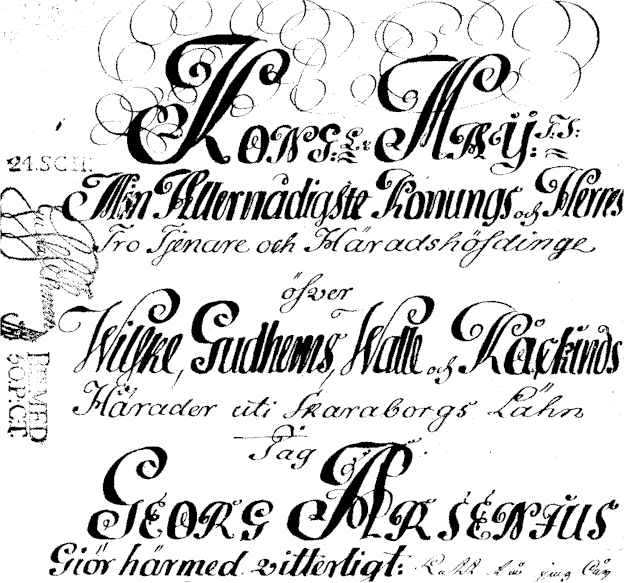 Kongl: Maÿ:tz:
24.SCH:
Min Allernådigste Konungs och Herres
Tro Tjenare och Häradshöfdinge
öfver
Wilske, Gudhems, Walle och Kåckinds
BEMED
Härader uti Skaraborgs Lähn
Jag
GEORG ARSENIUS
Giör härmed vitterligt: